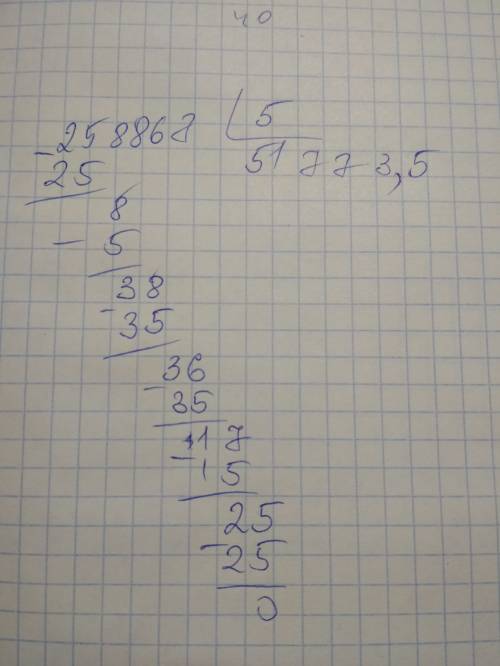 40
258867 5
25 51773,5
8
- 5
38
- 35
36
- 35
17
- 15
25
- 25
0